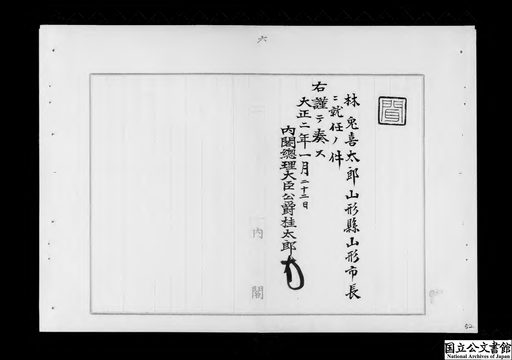 六
聞
林兎喜太郎山形縣山形市長
ニ就任ノ件
右謹テ奏ス
大正二年一月二十二日
内閣總理大臣公爵桂太郎
内閣
52
国立公文書館
National Archives of Japan